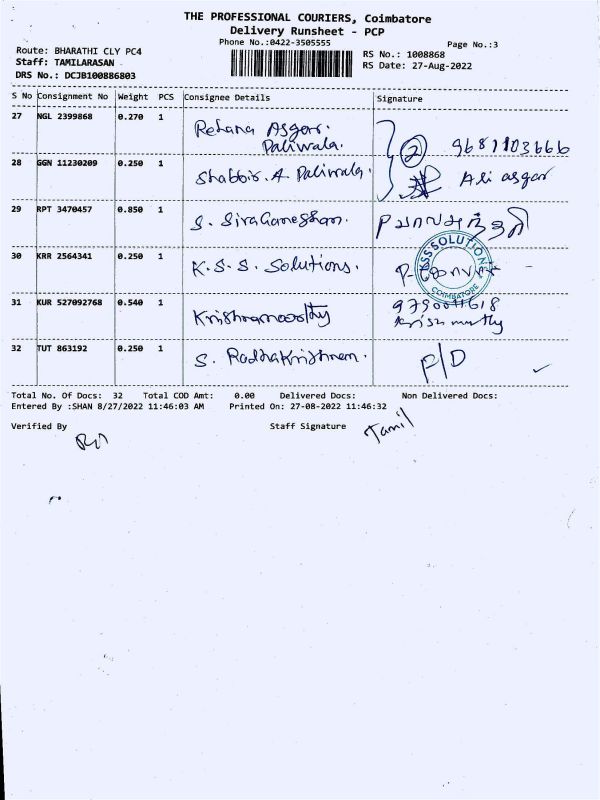 THE PROFESSIONAL COURIERS, Coimbatore
Delivery Runsheet - PCP
Phone No.:0422-3505555
Page No.:3
Route: BHARATHI CLY PC4
RS No.: 1008868
Staff: TAMILARASAN
RS Date: 27-Aug-2022
DRS No.: DCJB100886803
S No Consignment No Weight PCS Consignee Details Signature
27 NGL 2399868 0.270 1 Rehana Asgar. Paliwala. 9681103666
28 GGN 11230209 0.250 1 Shabbir. A. Paliwala. 2 Ali asgar
29 RPT 3470457 0.850 1 S. Siva Ganeshan.
30 KRR 2564341 0.250 1 K.S.S. Solutions.
KSS SOLUTIONS
COIMBATORE
31 KUR 527092768 0.540 1 Krishnamoorthy 9790011618
32 TUT 863192 0.250 1 S. Radhakrishnan. P/D
Total No. Of Docs: 32 Total COD Amt: 0.00 Delivered Docs: Non Delivered Docs:
Entered By :SHAN 8/27/2022 11:46:03 AM Printed On: 27-08-2022 11:46:32
Verified By Staff Signature Tamil